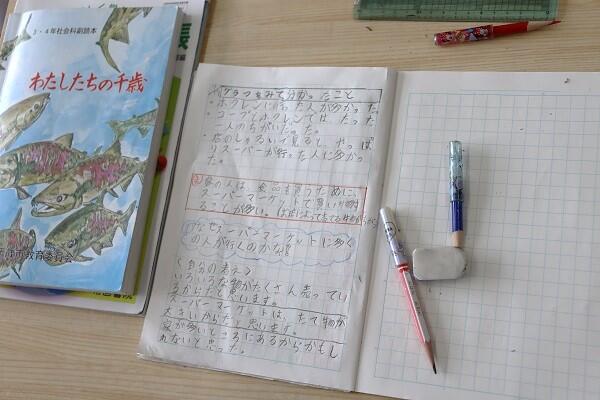 3・4年社会科副読本
わたしたちの千歳
市教育委員会
グラフをみて分かったこと
・ホクレンに行った人が分かった。
・コープとホクレンでは、たった
一人のちがいだった。
・店のしゅるいで見ると、やっぱ
りスーパーが行った人に多かっ
た。
の人は、食品を買うために、
スーパーマーケットで買い物す
ることが多い。
なぜスーパーマーケットに多く
の人が行くのかな
〈自分の考え〉
いろいろな物がたくさん売ってい
るからだと思います。
スーパーマーケットは、たて物が
大きいからだと思います。
家が多いところにあるからかもし
れないと思った。